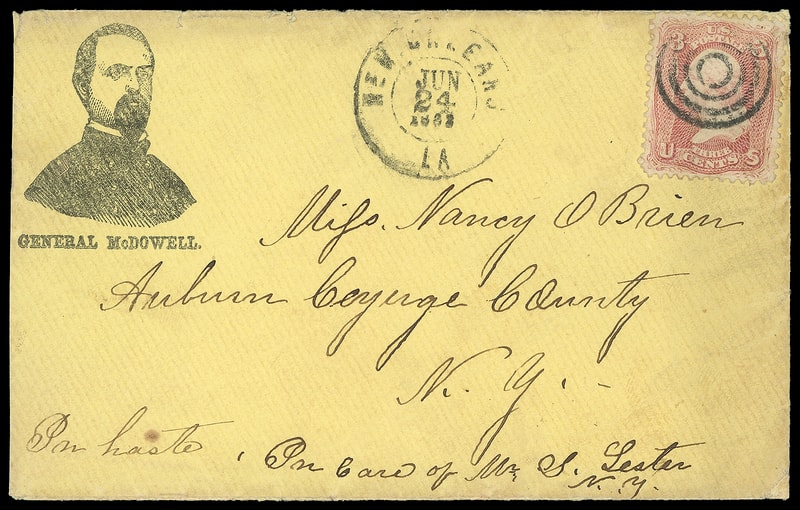 GENERAL McDOWELL.
NEW ORLEANS
JUN
24
1863
LA
3
U.S.
POSTAGE
THREE
U CENTS S
Miss. Nancy O Brien
Auburn Coyerge County
N. Y. -
In haste
In Care of Mr S. Lester
N. Y.